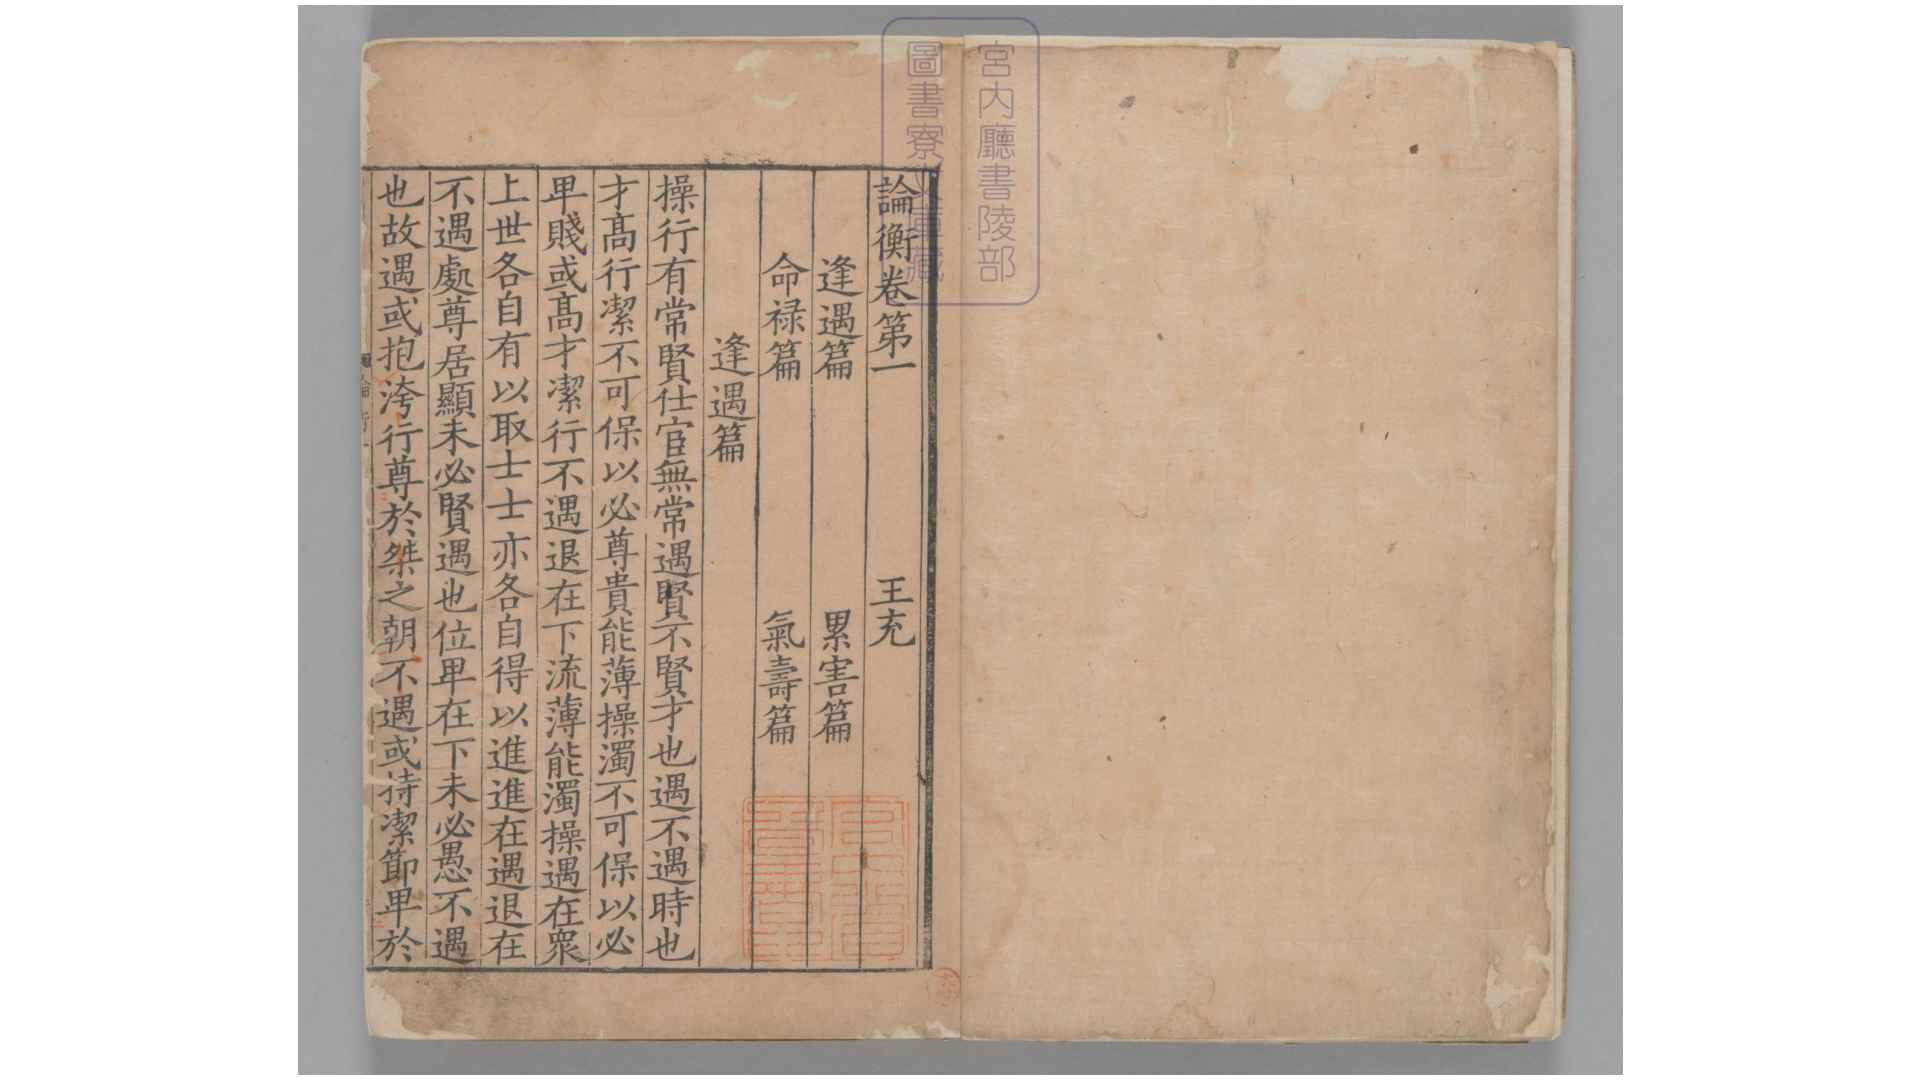 論衡卷第一 王充
逢遇篇 累害篇
命禄篇 氣壽篇
逢遇篇
操行有常賢仕宦無常遇賢不賢才也遇不遇時也
才髙行潔不可保以必尊貴能薄操濁不可保以必
卑賤或髙才潔行不遇退在下流薄能濁操遇在衆
上世各自有以取士士亦各自得以進進在遇退在
不遇處尊居顯未必賢遇也位卑在下未必愚不遇
也故遇或抱洿行尊於桀之朝不遇或持潔節卑於
宮内廳書陵部
圖書寮文庫藏